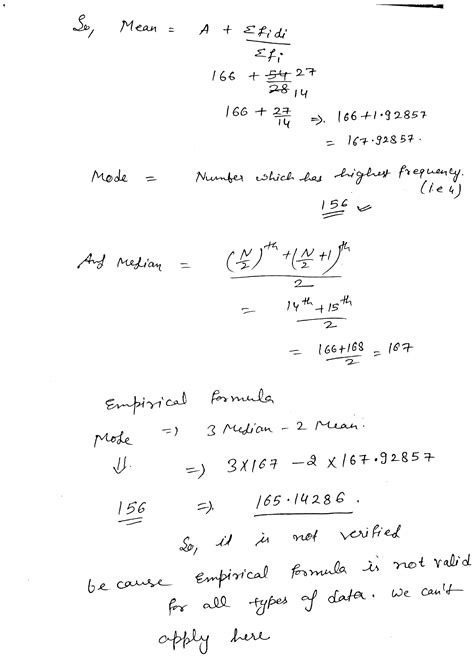 So, Mean = A + Σfidi / Σfi
166 + 54 27 / 28 14
166 + 27/14 ⇒. 166+1.92857
= 167.92857.
Mode = Number which has highest frequency.
(i.e 4)
156 ✓
And Median = (N/2)th + (N/2 + 1)th / 2
= 14th + 15th / 2
= 166+168 / 2 = 167
Empirical formula
Mode ⇒ 3 Median - 2 Mean.
⇓. ⇒ 3×167 - 2 × 167.92857
156 ⇒. 165.14286.
So, it is not verified
because Empirical formula is not valid
for all types of data. we can't
apply here